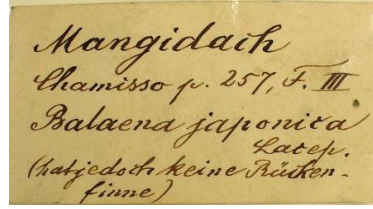 Mangidach
Chamisso p. 257, F. III
Balaena japonica
Lacep.
(hat jedoch keine Rücken-
finne)